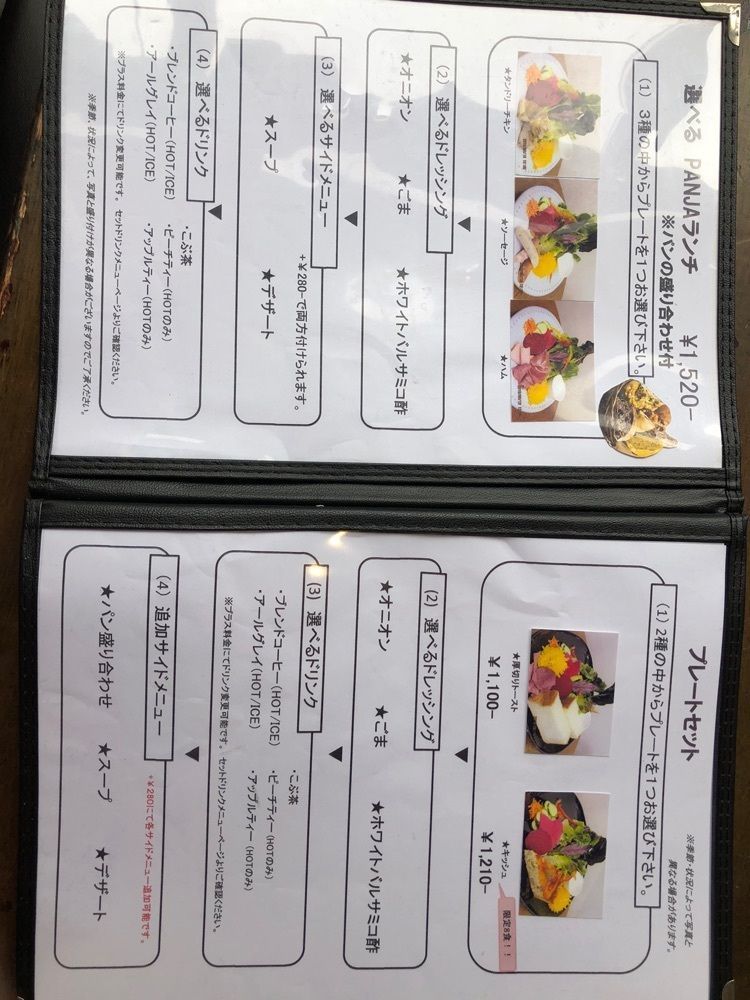 選べる PANJAランチ ¥1,520−
※パンの盛り合わせ付
(1) 3種の中からプレートを1つお選び下さい。
★タンドリーチキン ★ソーセージ ★ハム
(2) 選べるドレッシング
★オニオン ★ごま ★ホワイトバルサミコ酢
(3) 選べるサイドメニュー
+¥280−で両方付けられます。
★スープ ★デザート
(4) 選べるドリンク
・こぶ茶
・ブレンドコーヒー(HOT/ICE) ・ピーチティー(HOTのみ)
・アールグレイ(HOT/ICE) ・アップルティー(HOTのみ)
※プラス料金にてドリンク変更可能です。 セットドリンクメニューページよりご確認ください。
※季節、状況によって、写真と盛り付けが異なる場合がございますのでご了承ください。
プレートセット
※季節・状況によって写真と
異なる場合があります。
(1) 2種の中からプレートを1つお選び下さい。
★厚切りトースト
¥1,100−
★キッシュ
限定8食!!
¥1,210−
(2) 選べるドレッシング
★オニオン ★ごま ★ホワイトバルサミコ酢
(3) 選べるドリンク
・こぶ茶
・ブレンドコーヒー(HOT/ICE) ・ピーチティー(HOTのみ)
・アールグレイ(HOT/ICE) ・アップルティー(HOTのみ)
※プラス料金にてドリンク変更可能です。 セットドリンクメニューページよりご確認ください。
(4) 追加サイドメニュー
+¥280にて各サイドメニュー追加可能です。
★パン盛り合わせ ★スープ ★デザート